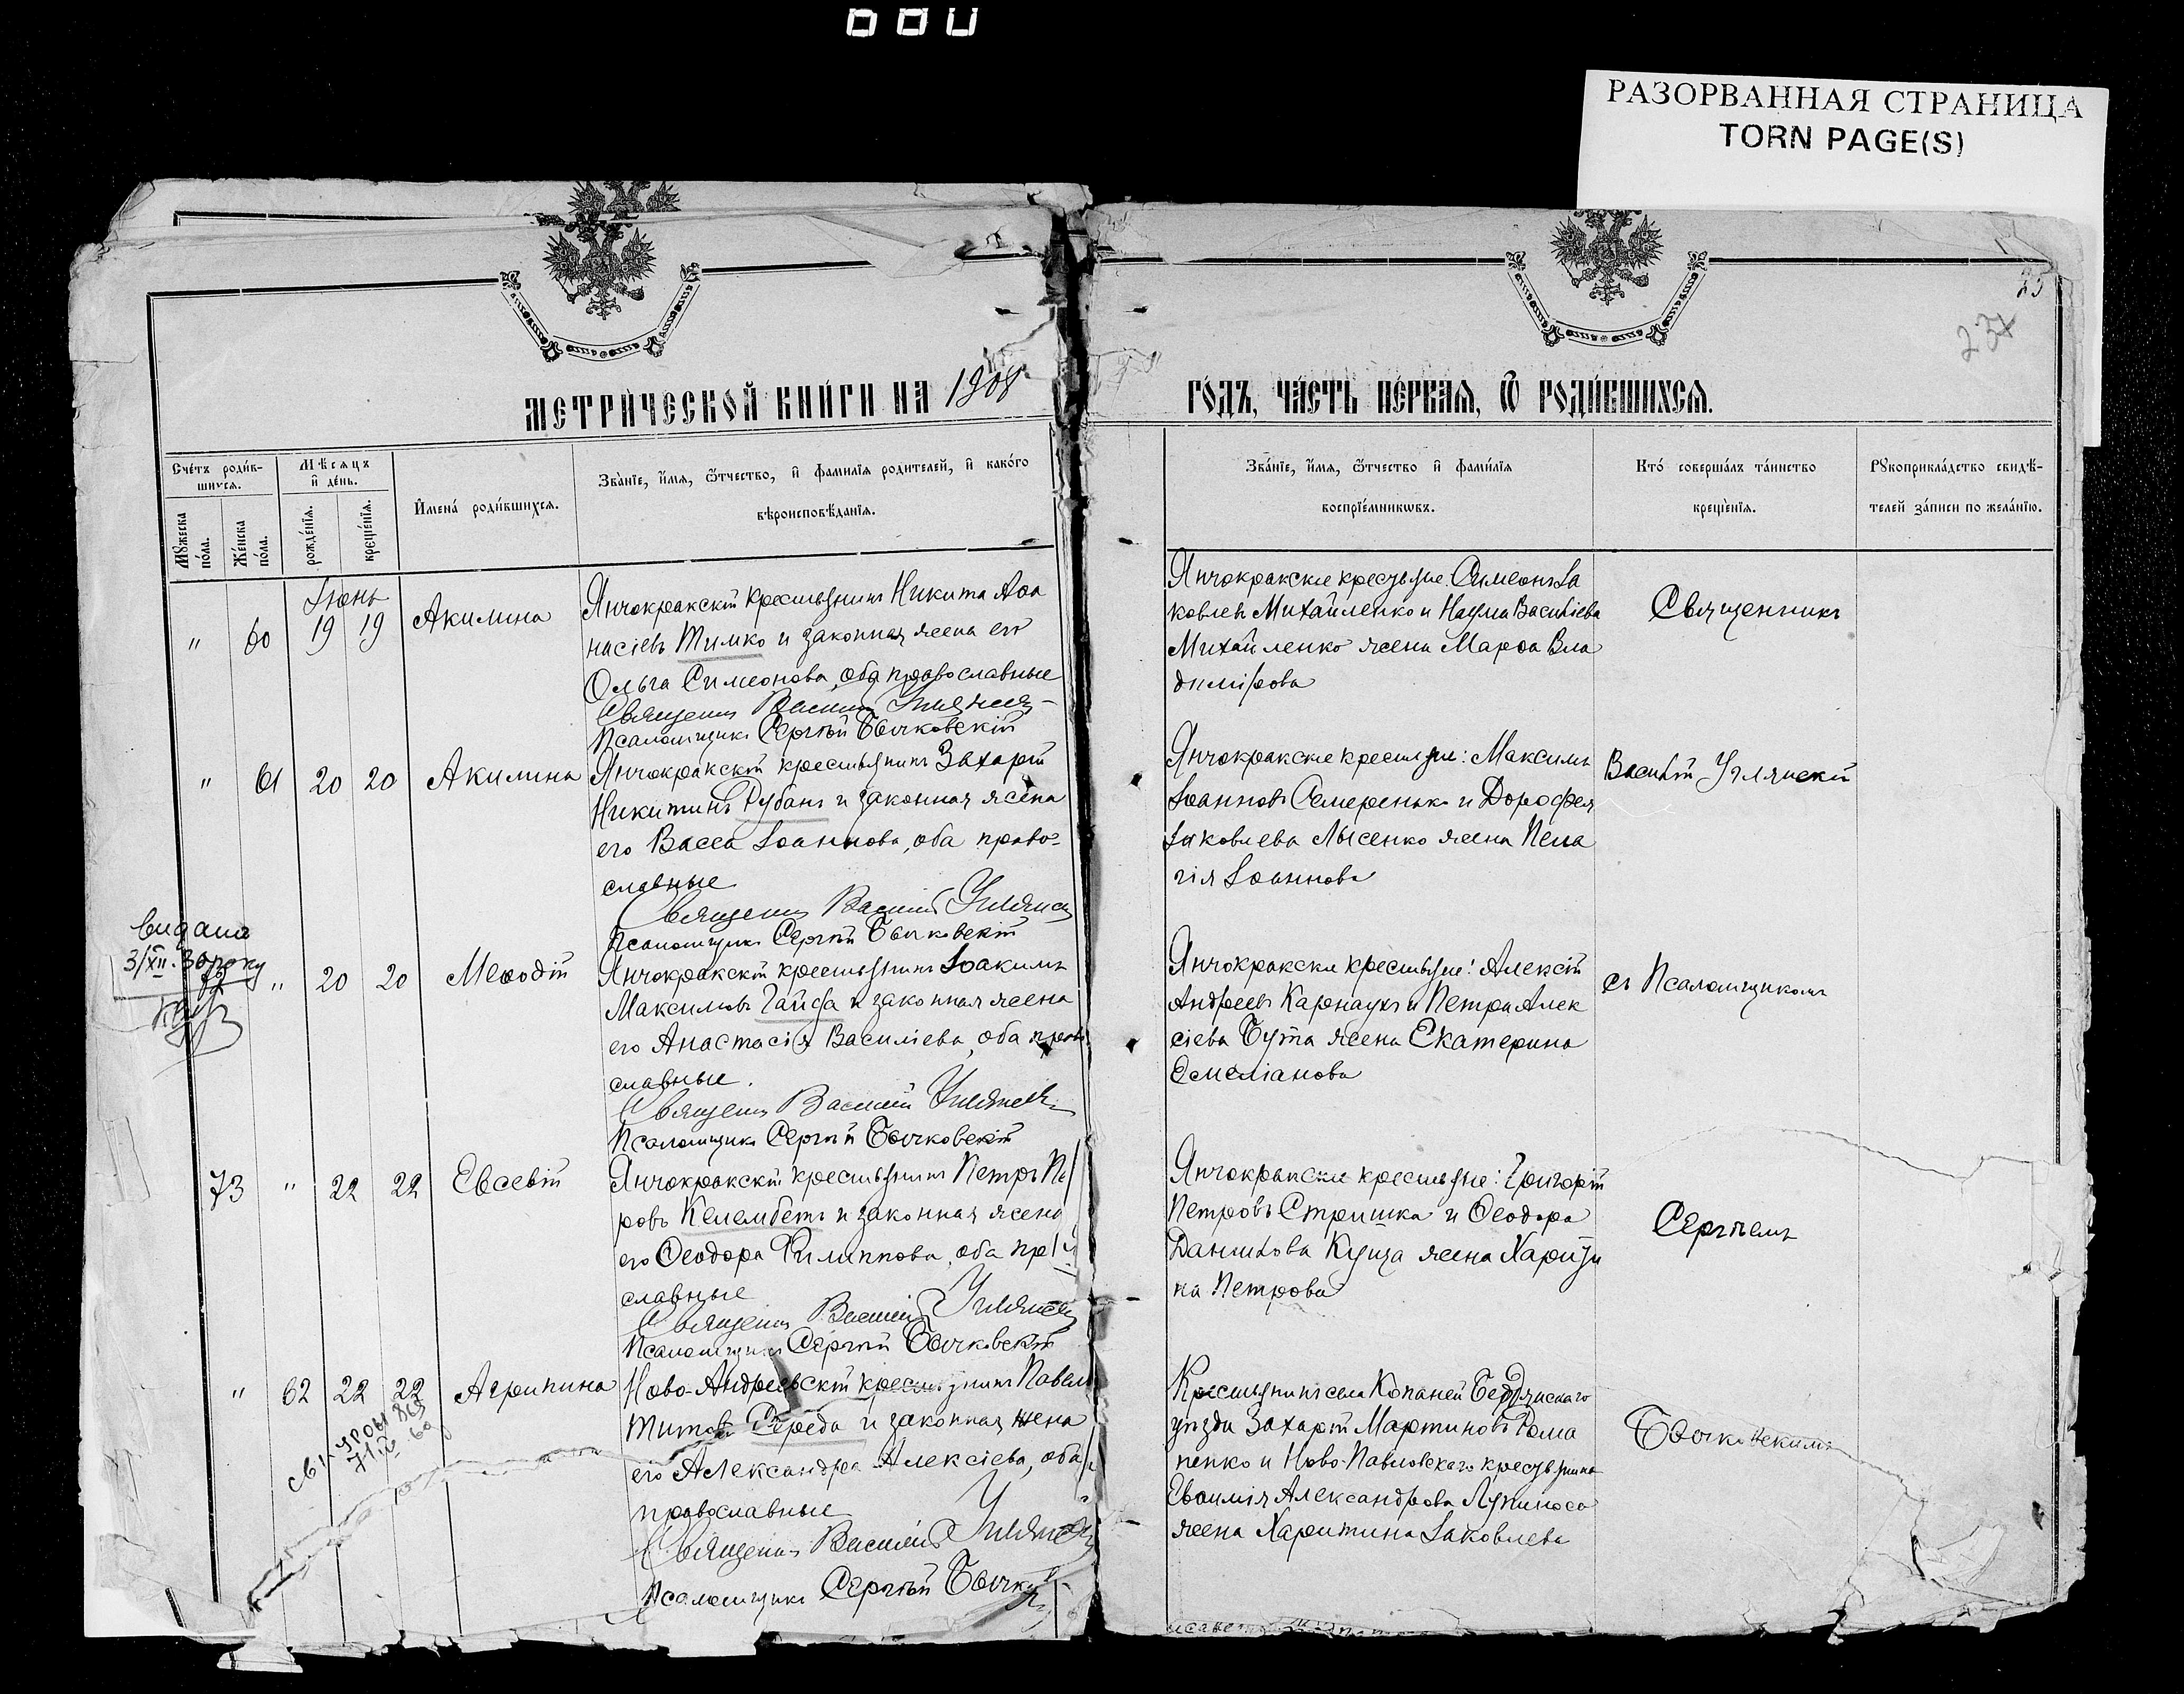 РАЗОРВАННАЯ СТРАНИЦА
TORN PAGE(S)
25
237
МЕТРИЧЕСКОЙ КНИГИ НА 1908
ГОДЪ, ЧАСТЬ ПЕРВАЯ, Ѿ РОДИВШИХСЯ.
Счетъ родив-
шихся.
Мѣсяцъ
и день.
Мужеска
пола.
Женска
пола.
рожденїя.
крещенїя.
Имена родившихся.
Званїе, имя, ѿчество, и фамилїя родителей, и какого
вѣроисповѣданїя.
Званїе, имя, ѿчество и фамилїя
воспрїемникѡвъ.
Кто совершалъ таинство
крещенїя.
Рукоприкладство свидѣ-
телей записи по желанїю.
Іюнь
" 60 19 19 Акилина
Янчокракскій крестьянинъ Никита Аѳа
насіевъ Тимко и законная жена его
Ольга Симеонова, оба православные
Священникъ Василій Углянскій
Псаломщикъ Сергѣй Бычковскій
Янчокракскіе крестьяне: Симеонъ Іа
ковлевъ Михайленко и Наума Василіева
Михайленко жена Марѳа Вла
димірова
Священникъ
" 61 20 20 Акилина
Янчокракскій крестьянинъ Захарій
Никитинъ Рубанъ и законная жена
его Васса Іоаннова, оба право-
славные
Священникъ Василій Углянскій
Псаломщикъ Сергѣй Бычковскій
Янчокракскіе крестьяне: Максимъ
Іоанновъ Семеренько и Дорофея
Іаковлева Лысенко жена Пела
гія Іоаннова
Василій Углянскій
видана
3/XII. 30 року
72 " 20 20 Меѳодій
Янчокракскій крестьянинъ Іоакимъ
Максимовъ Гайда и законная жена
его Анастасія Василіева, оба право
славные.
Священникъ Василій Углянскій
Псаломщикъ Сергѣй Бычковскій
Янчокракскіе крестьяне: Алексій
Андреевъ Карнаухъ и Петра Алек
сіева Бута жена Екатерина
Емеліанова
съ Псаломщикомъ
73 " 22 22 Евсевій
Янчокракскій крестьянинъ Петръ Пе
ровъ Келембетъ и законная жена
его Ѳеодора Филиппова, оба пра
славные
Священникъ Василій Углянскій
Псаломщикъ Сергѣй Бычковскій
Янчокракскіе крестьяне: Григорій
Петровъ Стришка и Ѳеодора
Данилова Куща жена Харити
на Петрова
Сергѣемъ
" 62 22 22 Агрипина
Ново-Андреевскій крестьянинъ Павелъ
Титовъ Середа и законная жена
его Александра Алексіева, оба
православные
Священникъ Василій Углянскій
Псаломщикъ Сергѣй Бычк
Крестьянинъ села Копаней Бердянскаго
уѣзда Захарій Мартиновъ Рома
ненко и Ново-Павловскаго крестьянина
Евѳимія Александрова Лупиноса
жена Харитина Іаковлева
Бычковскимъ